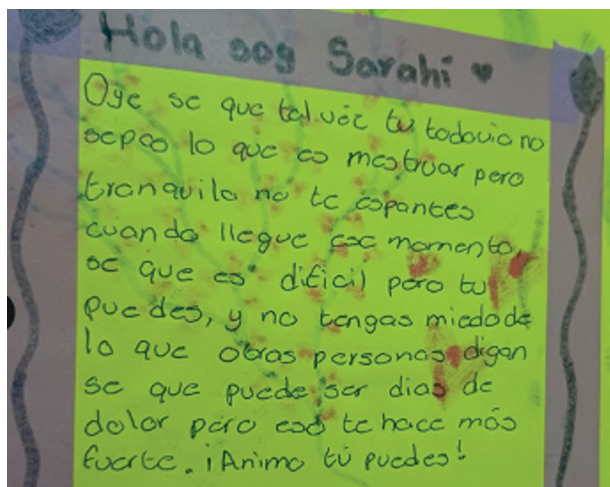 Hola soy Sarahí ♥
Oye se que tal véz tu todavia no
sepas lo que es mestruar pero
tranquila no te espantes
cuando llegue ese momento,
se que es dificil pero tu
puedes, y no tengas miedo de
lo que otras personas digan
se que puede ser dias de
dolor pero eso te hace más
fuerte. ¡Animo tú puedes!